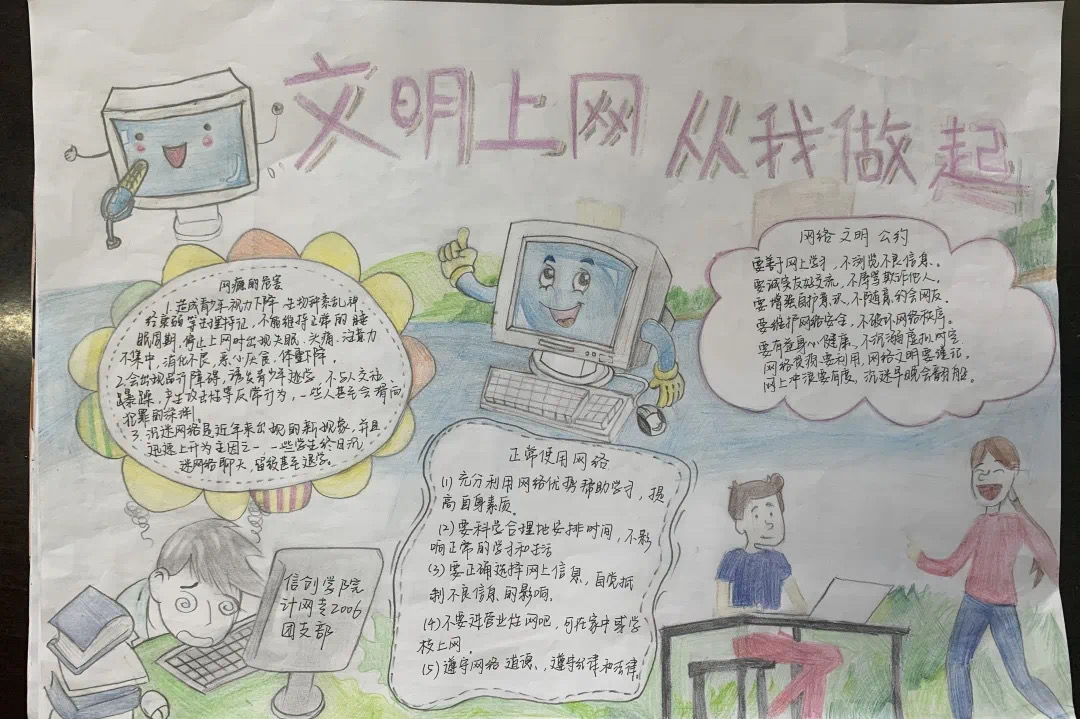 文明上网 从我做起
网瘾的危害
1.造成青少年视力下降,生物钟紊乱,神
经衰弱等生理特征,不能维持正常的睡
眠周期,停止上网时出现失眠、头痛、注意力
不集中,消化不良,恶心厌食,体重下降。
2.会出现品行障碍,诱发青少年逃学,不与人交往
躁,产生攻击性等反常行为,一些人甚至会滑向
犯罪的深渊
3.沉迷网络是近年来出现的新现象,并且
迅速上升为主因之一,一些学生终日沉
迷网络聊天,留级甚至退学。
网络文明公约
要善于网上学习,不浏览不良信息。
要诚实友好交流,不辱骂欺诈他人。
要增强自护意识,不随意约会网友。
要维护网络安全,不破坏网络秩序。
要有益身心健康,不沉溺虚拟时空
网络资源要利用,网络文明要谨记。
网上冲浪要有度,沉迷早晚会翻船。
正常使用网络
(1)充分利用网络优势帮助学习,提
高自身素质。
(2)要科学合理地安排时间,不影
响正常的学习和生活
(3)要正确选择网上信息,自觉抵
制不良信息的影响。
(4)不要进营业性网吧,可在家中或学
校上网。
(5)遵守网络道德、遵守纪律和法律。
信创学院
计网专2006
团支部